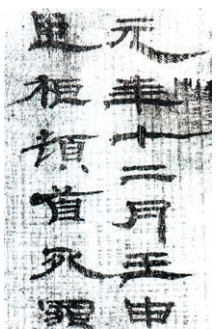 元年十二月壬申
臣頓首死罪